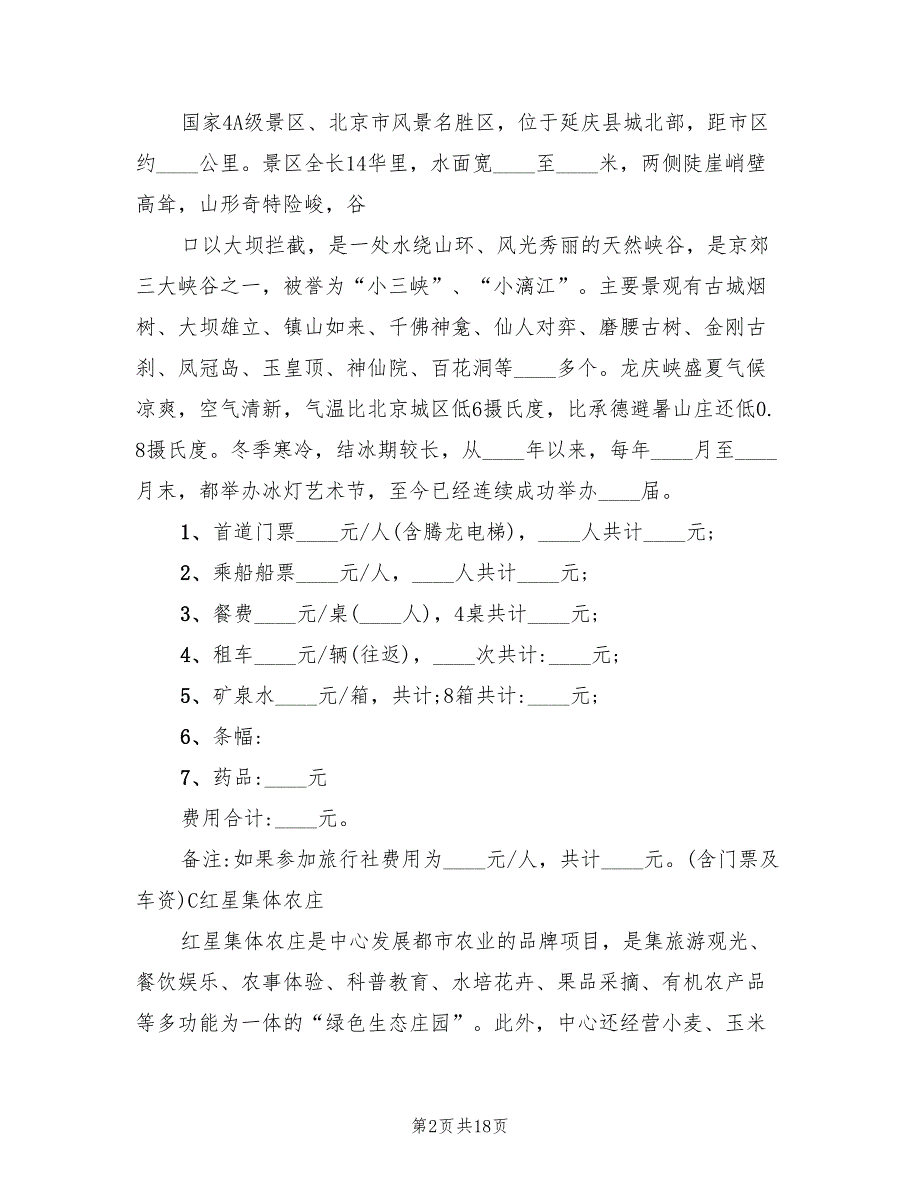 国家4A级景区、北京市风景名胜区，位于延庆县城北部，距市区
约____公里。景区全长14华里，水面宽____至____米，两侧陡崖峭壁
高耸，山形奇特险峻，谷
口以大坝拦截，是一处水绕山环、风光秀丽的天然峡谷，是京郊
三大峡谷之一，被誉为“小三峡”、“小漓江”。主要景观有古城烟
树、大坝雄立、镇山如来、千佛神龛、仙人对弈、磨腰古树、金刚古
刹、凤冠岛、玉皇顶、神仙院、百花洞等____多个。龙庆峡盛夏气候
凉爽，空气清新，气温比北京城区低6摄氏度，比承德避暑山庄还低0.
8摄氏度。冬季寒冷，结冰期较长，从____年以来，每年____月至____
月末，都举办冰灯艺术节，至今已经连续成功举办____届。
1、首道门票____元/人(含腾龙电梯)，____人共计____元;
2、乘船船票____元/人，____人共计____元;
3、餐费____元/桌(____人)，4桌共计____元;
4、租车____元/辆(往返)，____次共计:____元;
5、矿泉水____元/箱，共计;8箱共计:____元;
6、条幅:
7、药品:____元
费用合计:____元。
备注:如果参加旅行社费用为____元/人，共计____元。(含门票及
车资)C红星集体农庄
红星集体农庄是中心发展都市农业的品牌项目，是集旅游观光、
餐饮娱乐、农事体验、科普教育、水培花卉、果品采摘、有机农产品
等多功能为一体的“绿色生态庄园”。此外，中心还经营小麦、玉米
第2页共18页